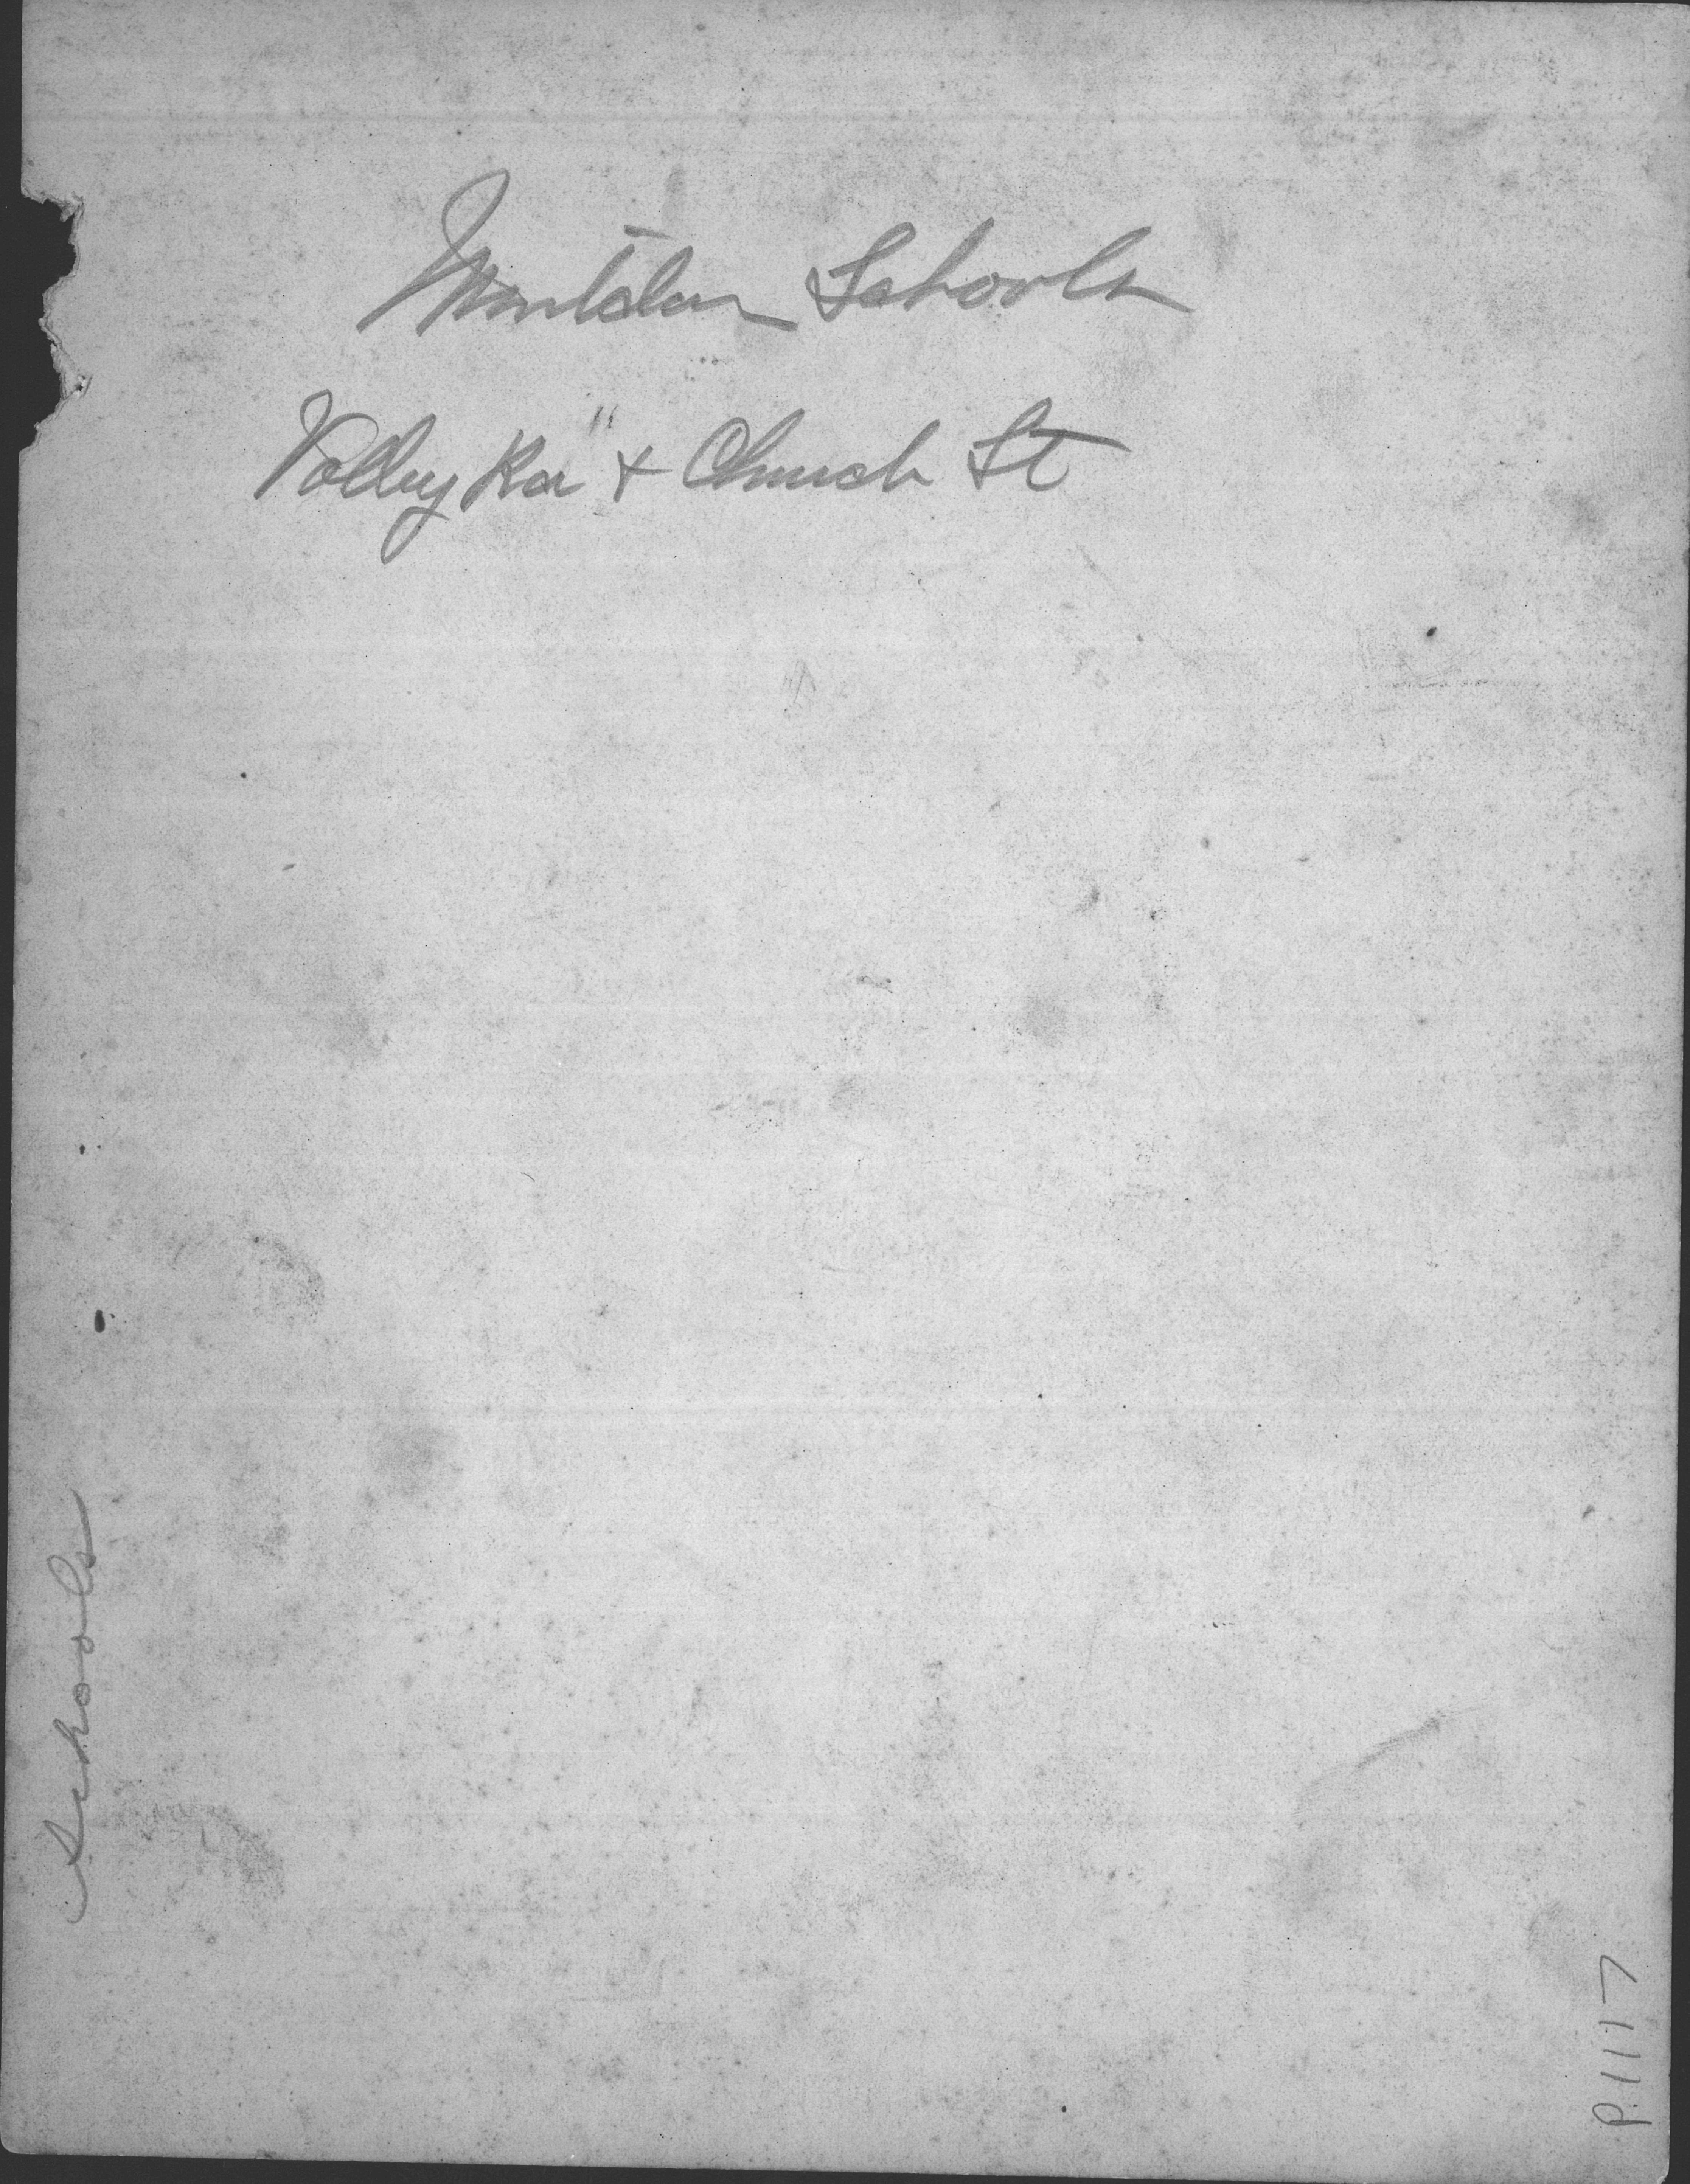 Montclair Schools
Valley Rd " + Church St
Schools
P.1117